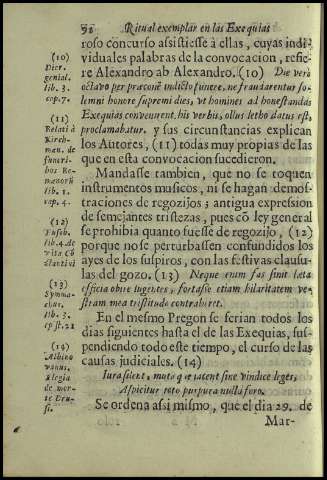 92 Ritual exemplar en las Exequias
roso concurso assistiesse à ellas, cuyas indi-
viduales palabras de la convocacion, refie-
re Alexandro ab Alexandro. (10) Die verò
octavo per præconẽ indicto funere, ne fraudarentur so-
lemni honore supremi dies, ut homines ad honestandas
Exequias convenirent, his verbis, ollus letho datus est,
proclamabatur. y sus circunstancias explican
los Autores, (11) todas muy propias de las
que en esta convocacion sucedieron.
Mandasse tambien, que no se toquen
instrumentos musicos, ni se hagan demos-
traciones de regozijos; antigua expression
de semejantes tristezas, pues cõ ley general
se prohibia quanto fuesse de regozijo, (12)
porque no se perturbassen confundidos los
ayes de los suspiros, con las festivas clausu-
las del gozo. (13) Neque enim fas sinit læta
officia obire lugentes, fortasse etiam hilaritatem ve-
stram mea tristitudo contraheret.
En el mesmo Pregon se ferian todos los
dias siguientes hasta el de las Exequias, sus-
pendiendo todo este tiempo, el curso de las
causas judiciales. (14)
Iura silent, mutæque iacent sine vindice leges,
Aspicitur toto purpura nulla foro.
Se ordena assimismo, que el dia 29. de
Mar-
(10)
Dier.
genial.
lib. 3.
cap. 7.
(11)
Relati à
Kirch-
man. de
funeri-
bus Ro-
manorũ
lib. 1.
cap. 4.
(12)
Euseb.
lib. 4. de
vita Cõ
stantini
(13)
Symma-
chus.
lib. 3.
epist. 21
(14)
Albino
vanus.
Elegia
de mor-
te Dru-
si.